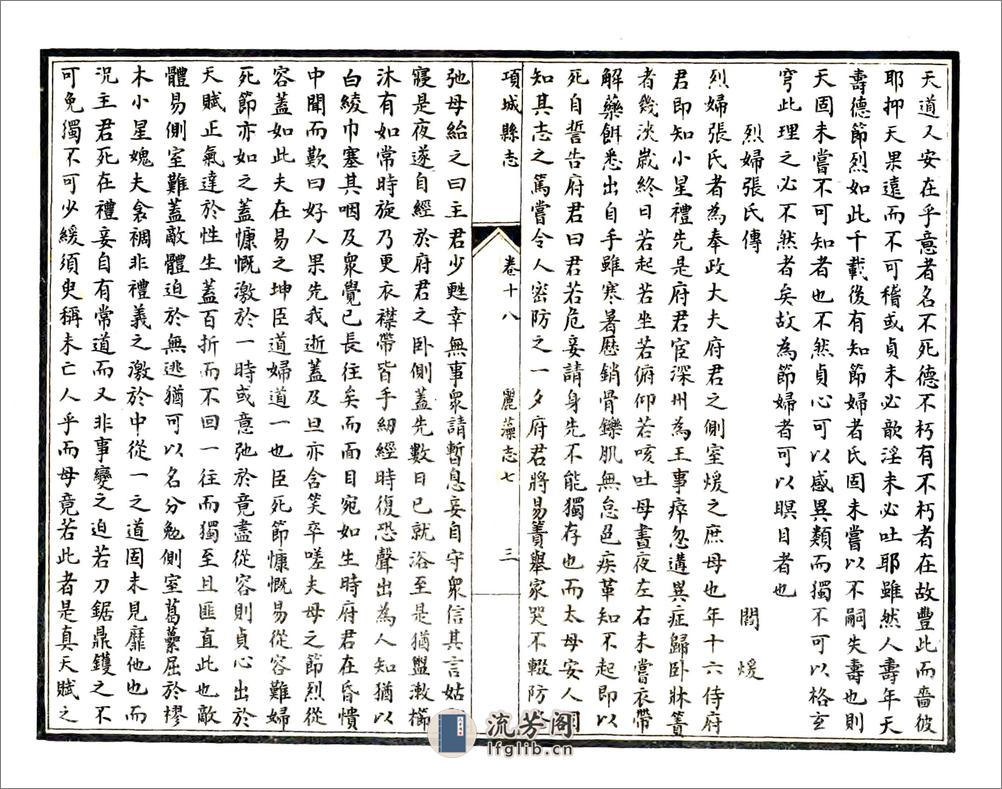 天道又安在乎意者名不死德不朽有不朽者在故豐此而嗇彼
耶抑天果遠而不可稽或貞未必歆淫未必吐耶雖然人壽年天
壽德節烈如此千載後有知節婦者氏固未嘗以不嗣失壽也則
天固未嘗不可知者也不然貞心可以感異類而獨不可以格玄
穹此理之必不然者矣故為節婦者可以瞑目者也
烈婦張氏傳 閻煖
烈婦張氏者為奉政大夫府君之側室煖之庶母也年十六侍府
君即知小星禮先是府君宦深州為王事瘁忽遘異症歸卧牀簀
者幾浹歲終日若起若坐若俯仰若咳吐母晝夜左右未嘗衣帶
解藥餌悉出自手雖寒暑歷銷骨鑠肌無怠色疾革知不起即以
死自誓告府君曰君若危妾請身先不能獨存也而太母安人
知其志之篤嘗令人密防之一夕府君將易簀舉家哭不輟防
項城縣志 卷十八 麗藻志七 三
弛母紿之曰主君少甦幸無事衆請暫息妾自守衆信其言姑
寢是夜遂自經於府君之卧側蓋先數日已就浴至是猶盥漱櫛
沐有如常時旋乃更衣襟帶皆手紉經時復恐聲出為人知猶以
白綾巾塞其咽及衆覺已長往矣而面目宛如生時府君在昏憒
中聞而歎曰好人果先我逝蓋及旦亦含笑卒嗟夫母之節烈從
容蓋如此夫在易之坤臣道婦道一也臣死節慷慨易從容難婦
死節亦如之蓋慷慨激於一時或意弛於竟盡從容則貞心出於
天賦正氣達於性生蓋百折而不回一往而獨至且匪直此也敵
體易側室難蓋敵體迫於無逃猶可以名分勉側室葛藟屈於樛
木小星媿夫衾裯非禮義之激於中從一之道固未見靡他也而
況主君死在禮妾自有常道而又非事變之迫若刀鋸鼎鑊之不
可免獨不可少緩須臾稱未亡人乎而母竟若此者是真天賦之
流芳阁
lfglib.cn